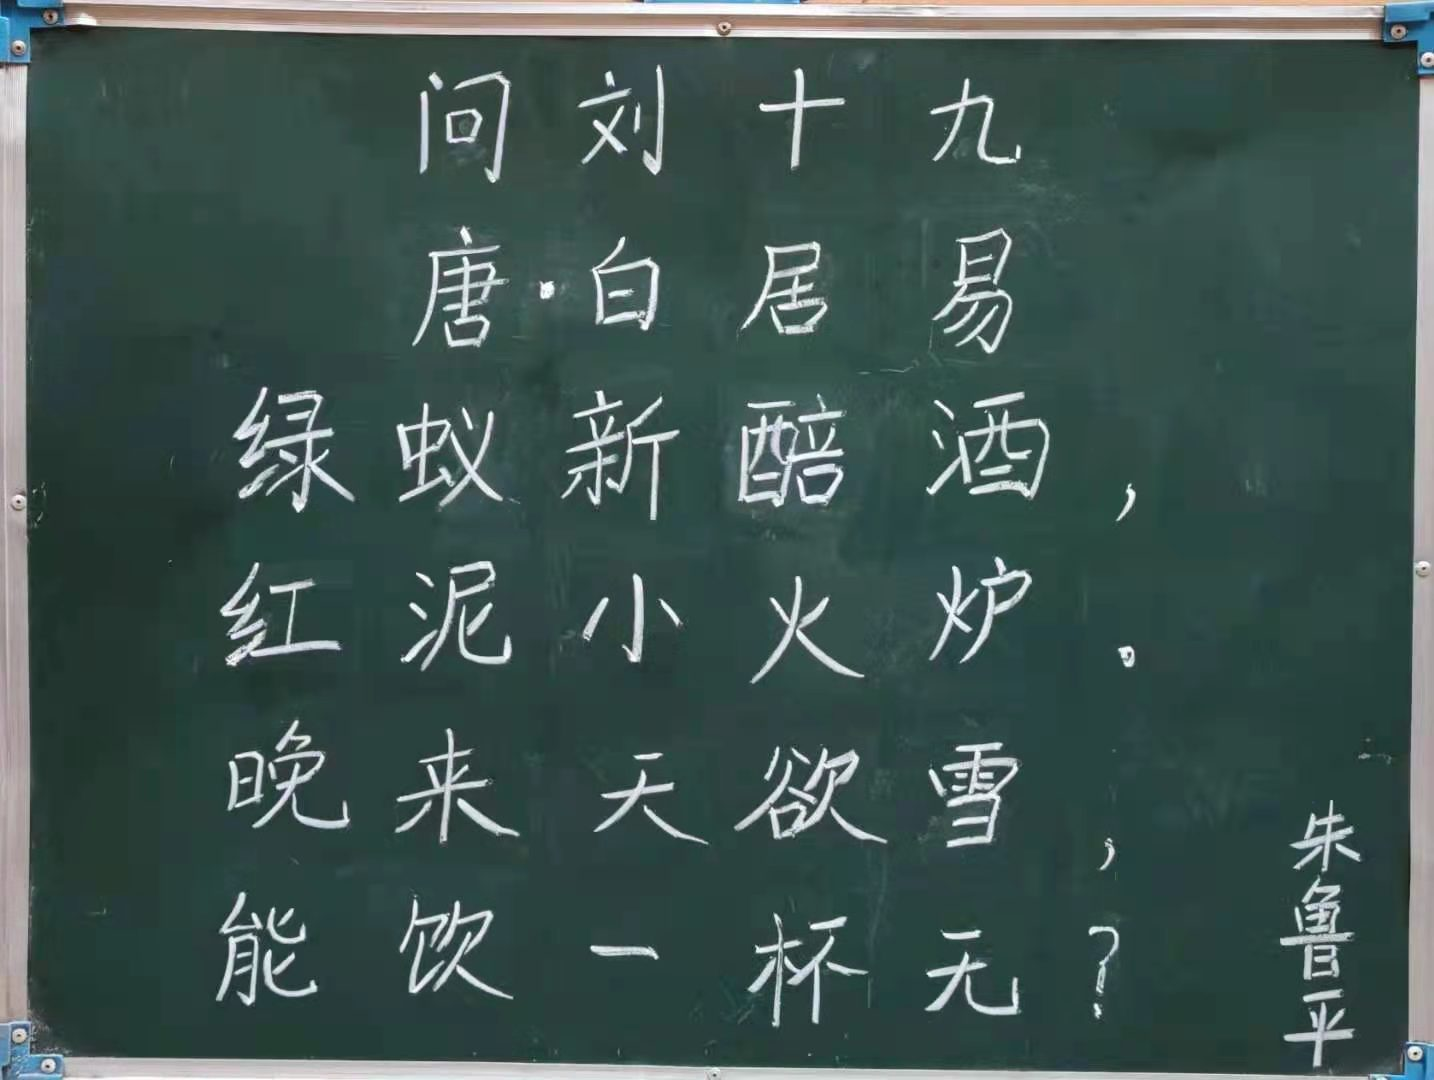 问刘十九
唐·白居易
绿蚁新醅酒，
红泥小火炉。
晚来天欲雪，
能饮一杯无？
朱鲁平